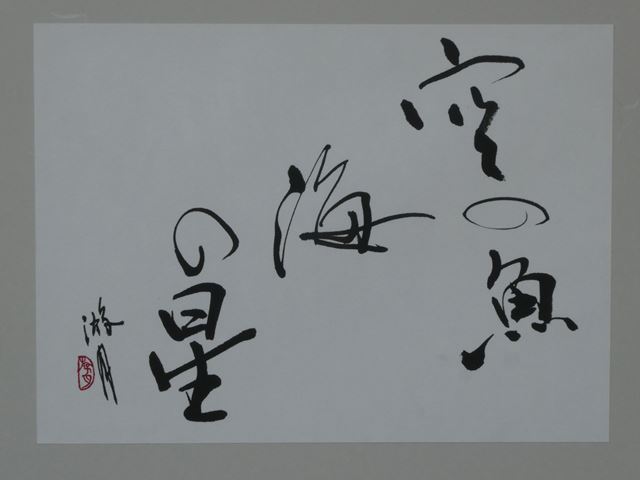 空の魚
海
の星
游月